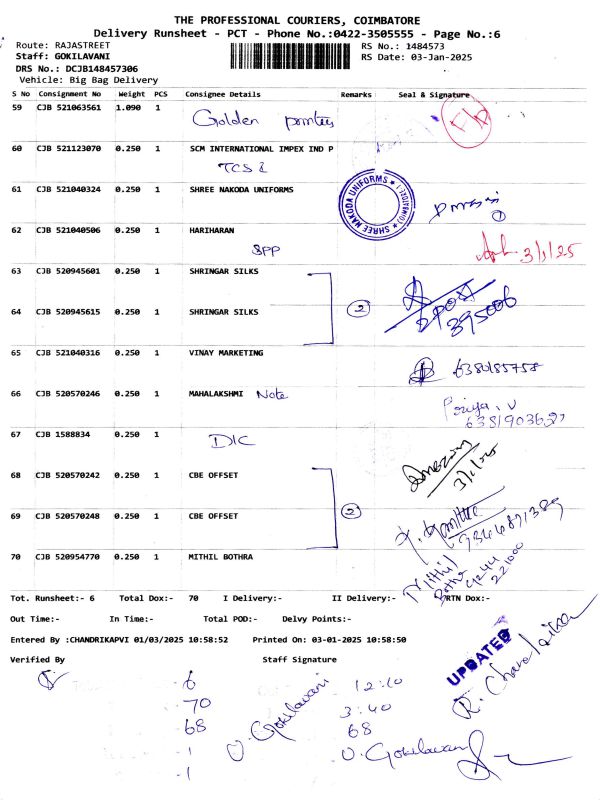 THE PROFESSIONAL COURIERS, COIMBATORE
Delivery Runsheet - PCT - Phone No.:0422-3505555 - Page No.:6
Route: RAJASTREET RS No.: 1484573
Staff: GOKILAVANI RS Date: 03-Jan-2025
DRS No.: DCJB148457306
Vehicle: Big Bag Delivery
S No Consignment No Weight PCS Consignee Details Remarks Seal & Signature
59 CJB 521063561 1.090 1 Golden printers
60 CJB 521123070 0.250 1 SCM INTERNATIONAL IMPEX IND P
TCS
61 CJB 521040324 0.250 1 SHREE NAKODA UNIFORMS
SHREE NAKODA UNIFORMS
62 CJB 521040506 0.250 1 HARIHARAN
SPP
3/1/25
63 CJB 520945601 0.250 1 SHRINGAR SILKS
2
395006
64 CJB 520945615 0.250 1 SHRINGAR SILKS
65 CJB 521040316 0.250 1 VINAY MARKETING
6380185758
66 CJB 520570246 0.250 1 MAHALAKSHMI Note
Priya. V
67 CJB 1588834 0.250 1 DIC
68 CJB 520570242 0.250 1 CBE OFFSET
2
69 CJB 520570248 0.250 1 CBE OFFSET
70 CJB 520954770 0.250 1 MITHIL BOTHRA
Mithil
Bothra
4244
221000
Tot. Runsheet:- 6 Total Dox:- 70 I Delivery:- II Delivery:- RTN Dox:-
Out Time:- In Time:- Total POD:- Delvy Points:-
Entered By :CHANDRIKAPVI 01/03/2025 10:58:52 Printed On: 03-01-2025 10:58:50
UPDATED
Verified By Staff Signature
6 12:10
70 3:40
68 68
1 U. Gokilavani
1 U. Gokilavani